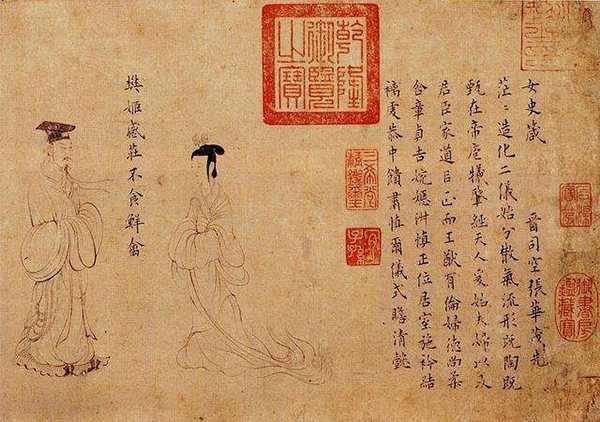 女史箴　晉司空張華茂先
茫〻造化二儀始分散氣流形既陶既
甄在帝庖犧肇經天人爰始夫婦以及
君臣家道以正而王猷有倫婦德尚柔
含章貞吉婉嫕淑慎正位居室施衿結
褵虔恭中饋肅慎爾儀式瞻清懿
樊姬感莊不食鮮禽
乾隆
御覽
之寶
三希堂
精鑑璽
宜
子孫
御書房
鑑藏寶